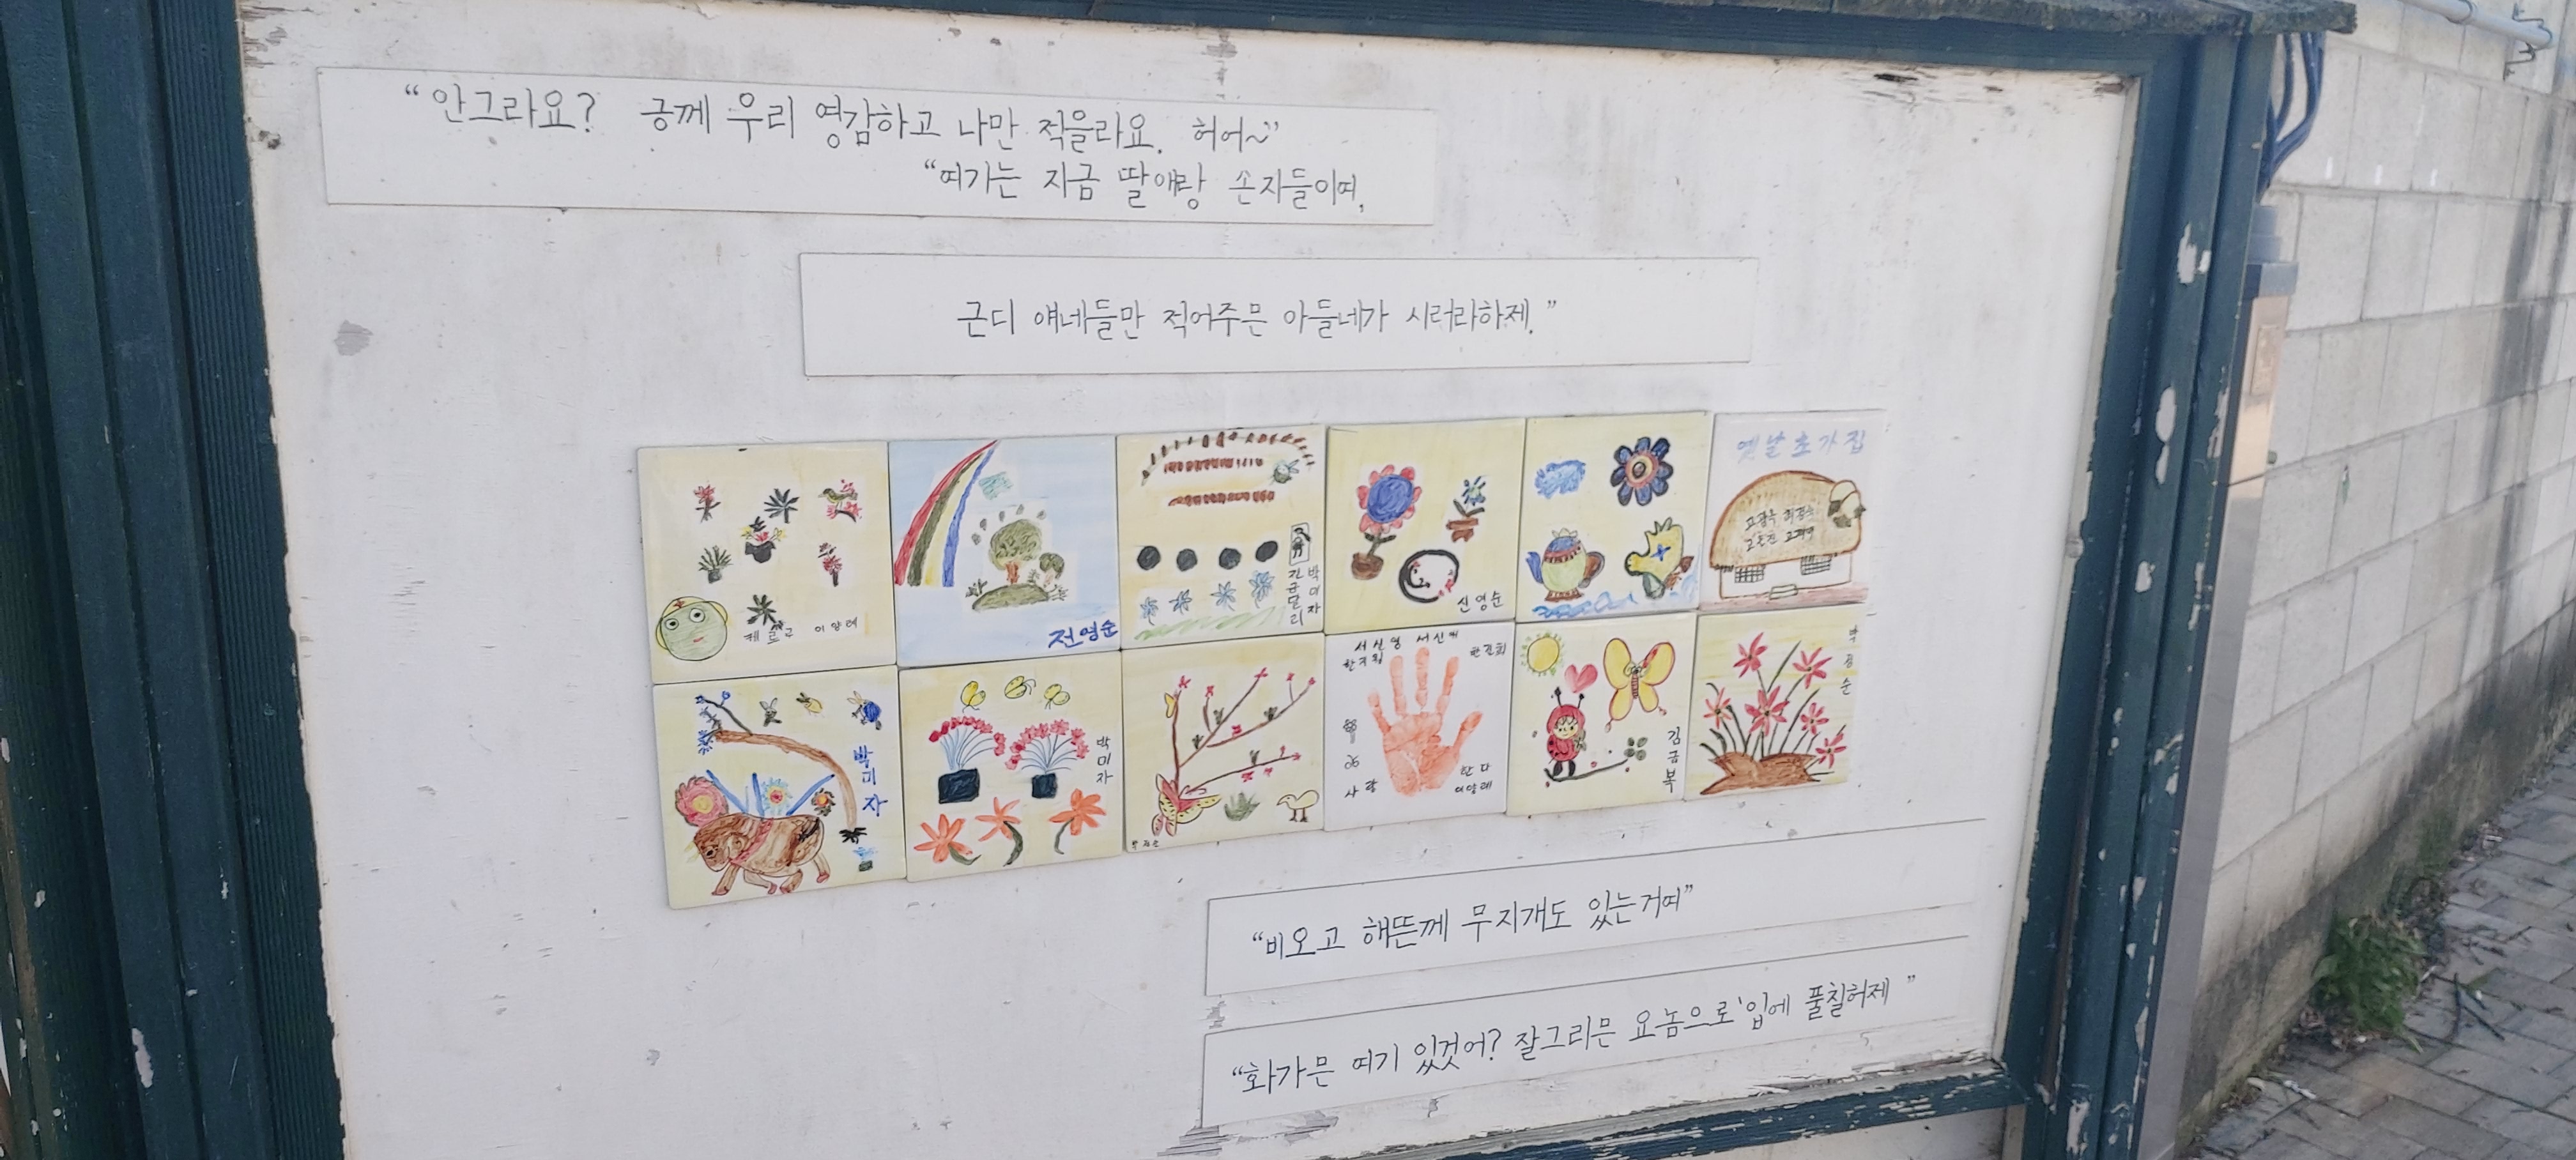 “안그라요? 긍께 우리 영감하고 나만 적을라요. 허어~”
“여기는 지금 딸애랑 손자들이여,
근디 얘네들만 적어주믄 아들네가 시러라하제.”
옛날초가집
전영순
박미자
신영순
이양례
박미자
박미자
서신영 서신애
한다
이양례
사랑
김금복
“비오고 해뜬께 무지개도 있는거여”
“화가믄 여기 있겄어? 잘그리믄 요놈으로 입에 풀칠허제”